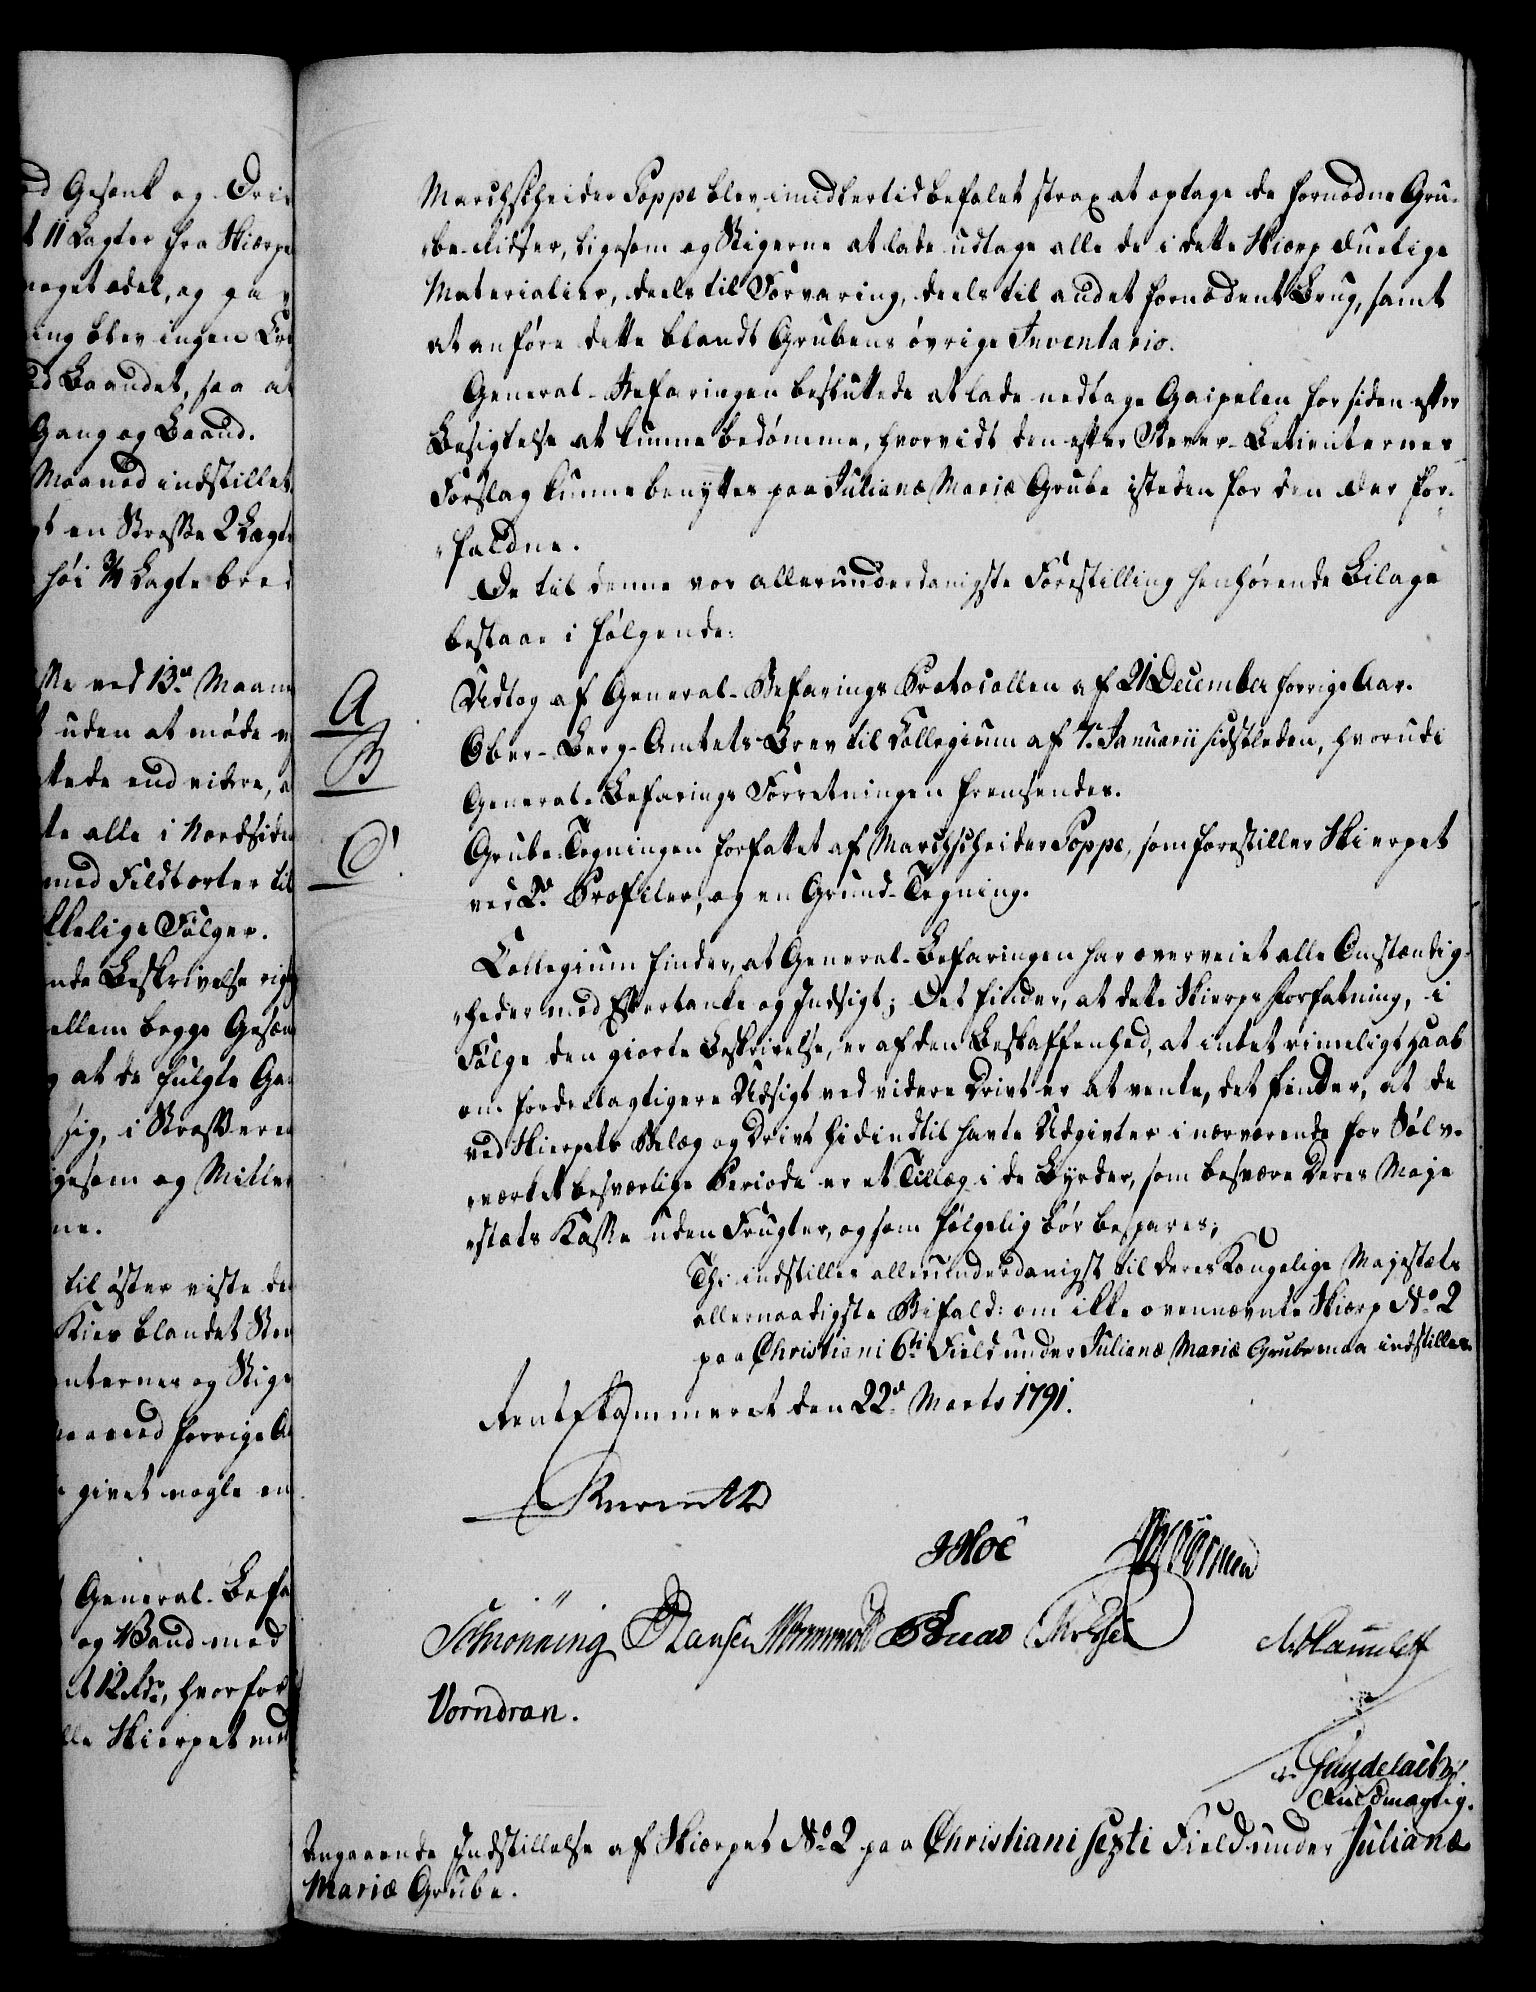 ed Gesenk og Driv
t 11 Lagter fra Skiærpe
noget ædel, og paa
ing blev ingen
ed Baandet, saa at
Gang og Baand.
Maaned indstillet
en Strosse 2 Lagte
høi ¾ Lagte bred
ved 13de Maane
uden at møde
tede end videre,
te alle i Nordsiden
med Feldtorter til
kelige Følger.
nde Beskrivelse rig
ellem begge Gesæn
at de fulgte Ga
sig, i Strosserne
igesom og Midler
ne.
til øster viste de
Kies blandet
nternes og Stige
Maaned forrige A
givet nogle en
General-Befa
og Vand med
12 Rdr, hvorfor
lle Skierpet med
Marchscheider Poppe blev imidlertid befalet strax at optage de fornødne Gru-
be-Ridser, ligesom og Stigerne at lade udtage alle de i dette Skiærp duelige
Materialier, deels til Forvaring, deels til andet fornødent Brug, samt
at anføre dette blandt Grubens øvrige Inventario.
General-Befaringen besluttede at lade nedtage Gaipelen for siden efter
Besigtelse at kunne bedømme, hvorvidt den efter Bever-Betienternes
Forslag kunne benyttes paa Julianæ Mariæ Grube isteden for den der for-
faldne.
De til denne vor allerunderdanigste Forestilling henhørende Bilage
bestaae i følgende:
A
Udtog af General-Befarings Protocollen af 21 December forrige Aar.
B
Ober-Berg-Amtets Brev til Collegium af 7de Januarii sidstleden, hvorudi
General-Befarings Forretningen fremsendes.
C
Grube-Tegningen forfattet af Marchscheider Poppe, som forestiller Skierpet
ved 2de Profiler, og en Grund-Tegning.
Collegium finder, at General-Befaringen har overveiet alle Omstændig-
heder med Eftertanke og Indsigt; Det finder, at dette Skierps Forfatning, i
Følge den giorte Beskrivelse, er af den Beskaffenhed, at intet rimeligt Haab
om fordeelagtigere Udsigt ved videre Drivt er at vente, det finder, at de
ved Skierpets Belæg og Drivt hidindtil havte Udgivter i nærværende for Sølv-
værket besværlige Periode er et Tillæg i de Byrder, som besvære Deres Maje
stæts Kasse uden Frugter, og som følgelig bør bespares;
Thi indstilles allerunderdanigst til Deres Kongelige Majestæts
allernaadigste Bifald: om ikke ovennævnte Skiærp No 2
paa Christiani 6ti Field under Julianæ Mariæ Grube maa indstilles.
Rentekammeret den 22de Marts 1791.
Schiønning Hansen
Vorndran.
Fuldmægtig.
Angaaende Indstillelse af Skiærpet No 2 paa Christiani sexti Field under Julianæ
Mariæ Grube.